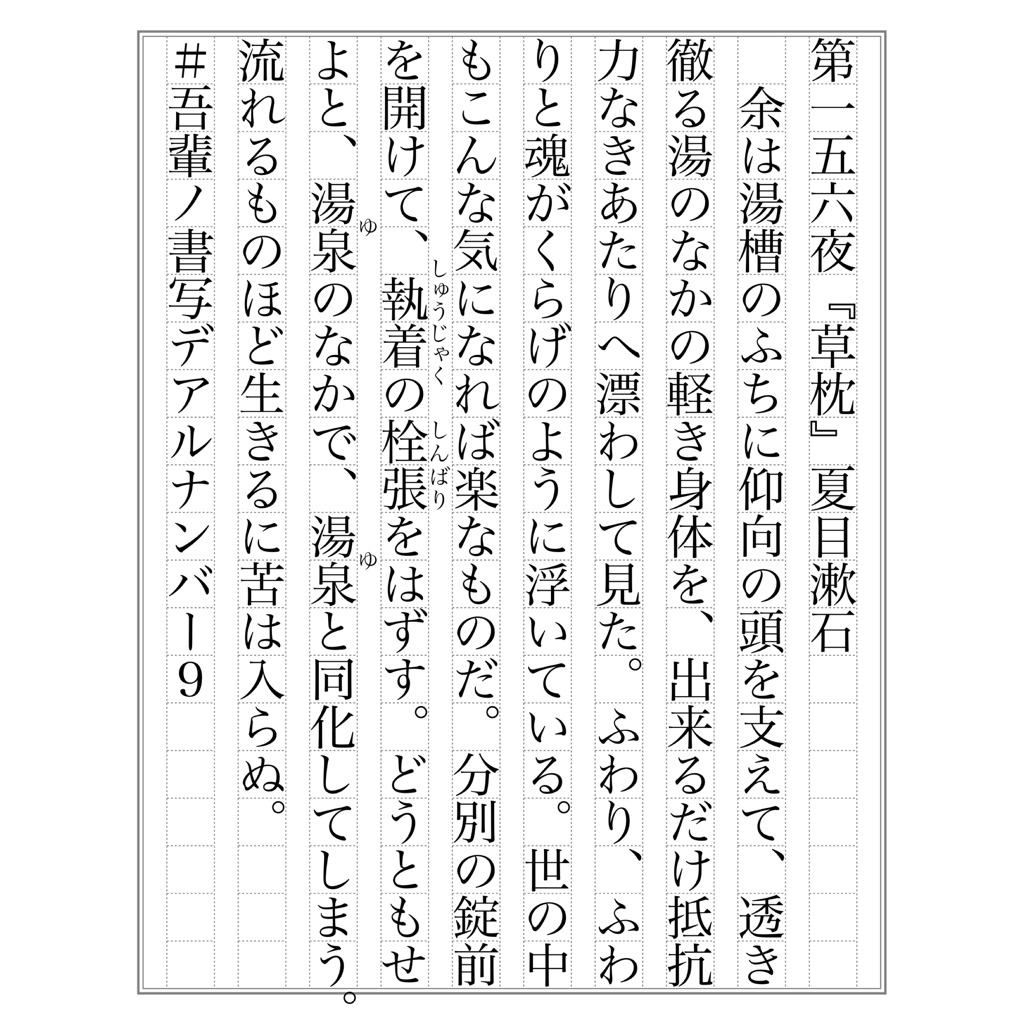 第一五六夜『草枕』夏目漱石
　余は湯槽のふちに仰向の頭を支えて、透き
徹る湯のなかの軽き身体を、出来るだけ抵抗
力なきあたりへ漂わして見た。ふわり、ふわ
りと魂がくらげのように浮いている。世の中
もこんな気になれば楽なものだ。分別の錠前
しゅうじゃく　しんばり
を開けて、執着の栓張をはずす。どうともせ
ゆ　ゆ
よと、湯泉のなかで、湯泉と同化してしまう。
流れるものほど生きるに苦は入らぬ。
＃吾輩ノ書写デアルナンバー９